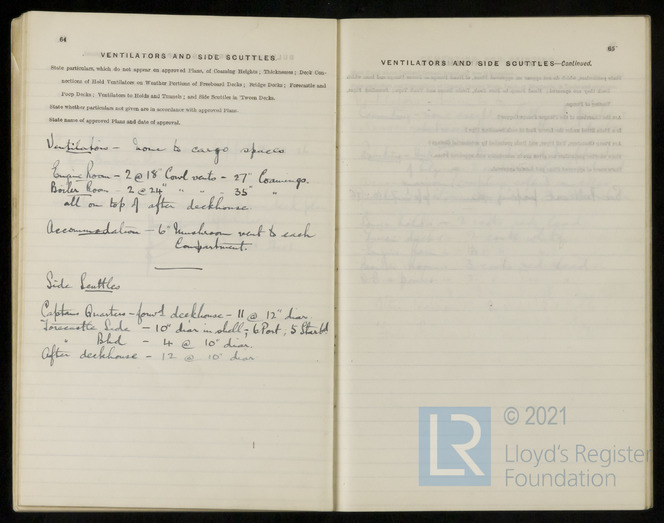 64
VENTILATORS AND SIDE SCUTTLES
State particulars, which do not appear on approved Plans, of Coaming Heights; Thicknesses; Deck Con-
nections of Hold Ventilators on Weather Portions of Freeboard Decks; Bridge Decks; Forecastle and
Poop Decks; Ventilators to Holds and Tunnels; and Side Scuttles in 'Tween Decks.
State whether particulars not given are in accordance with approved Plans.
State name of approved Plans and date of approval.
Ventilators - none to cargo spaces
Engine Room - 2 @ 18" Cowl vents - 27" Coamings.
Boiler Room - 2 @ 24" " " - 35" "
all on top of after deckhouse
Accommodation - 6" Mushroom vent to each
Compartment.
Side Scuttles
Captains Quarters - forwd deckhouse - 11 @ 12" diar.
Forecastle Side - 10" diar in shell; 6 Port, 5 Starbd
" Bhd - 4 @ 10" diar.
After deckhouse - 12 @ 10" diar
65
VENTILATORS AND SIDE SCUTTLES—Continued.
LR
© 2021
Lloyd's Register
Foundation